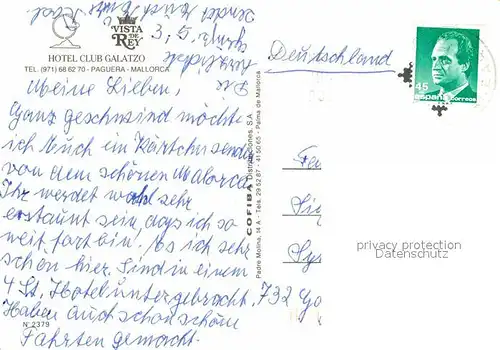 VISTA
DE
REY
HOTEL CLUB GALATZO
TEL. (971) 68 62 70 - PAGUERA - MALLORCA
Meine Lieben,
Ganz geschwind möchte
ich Euch ein Kärtchen senden
von dem schönen Malorca
Ihr werdet wohl sehr
erstaunt sein, daß ich so
weit fort bin. Es ich sehr
schön hier. Sind in einem
4 St. Hotel untergebracht.
Haben auch schon schöne
Fahrten gemacht.
Nº 2379
COFIBA Distribuciones, S.A.
Padre Molina, 14 A - Tels. 29 52 87 - 41 50 65 - Palma de Mallorca
Deutschland
45
España correos
732
privacy protection
Datenschutz